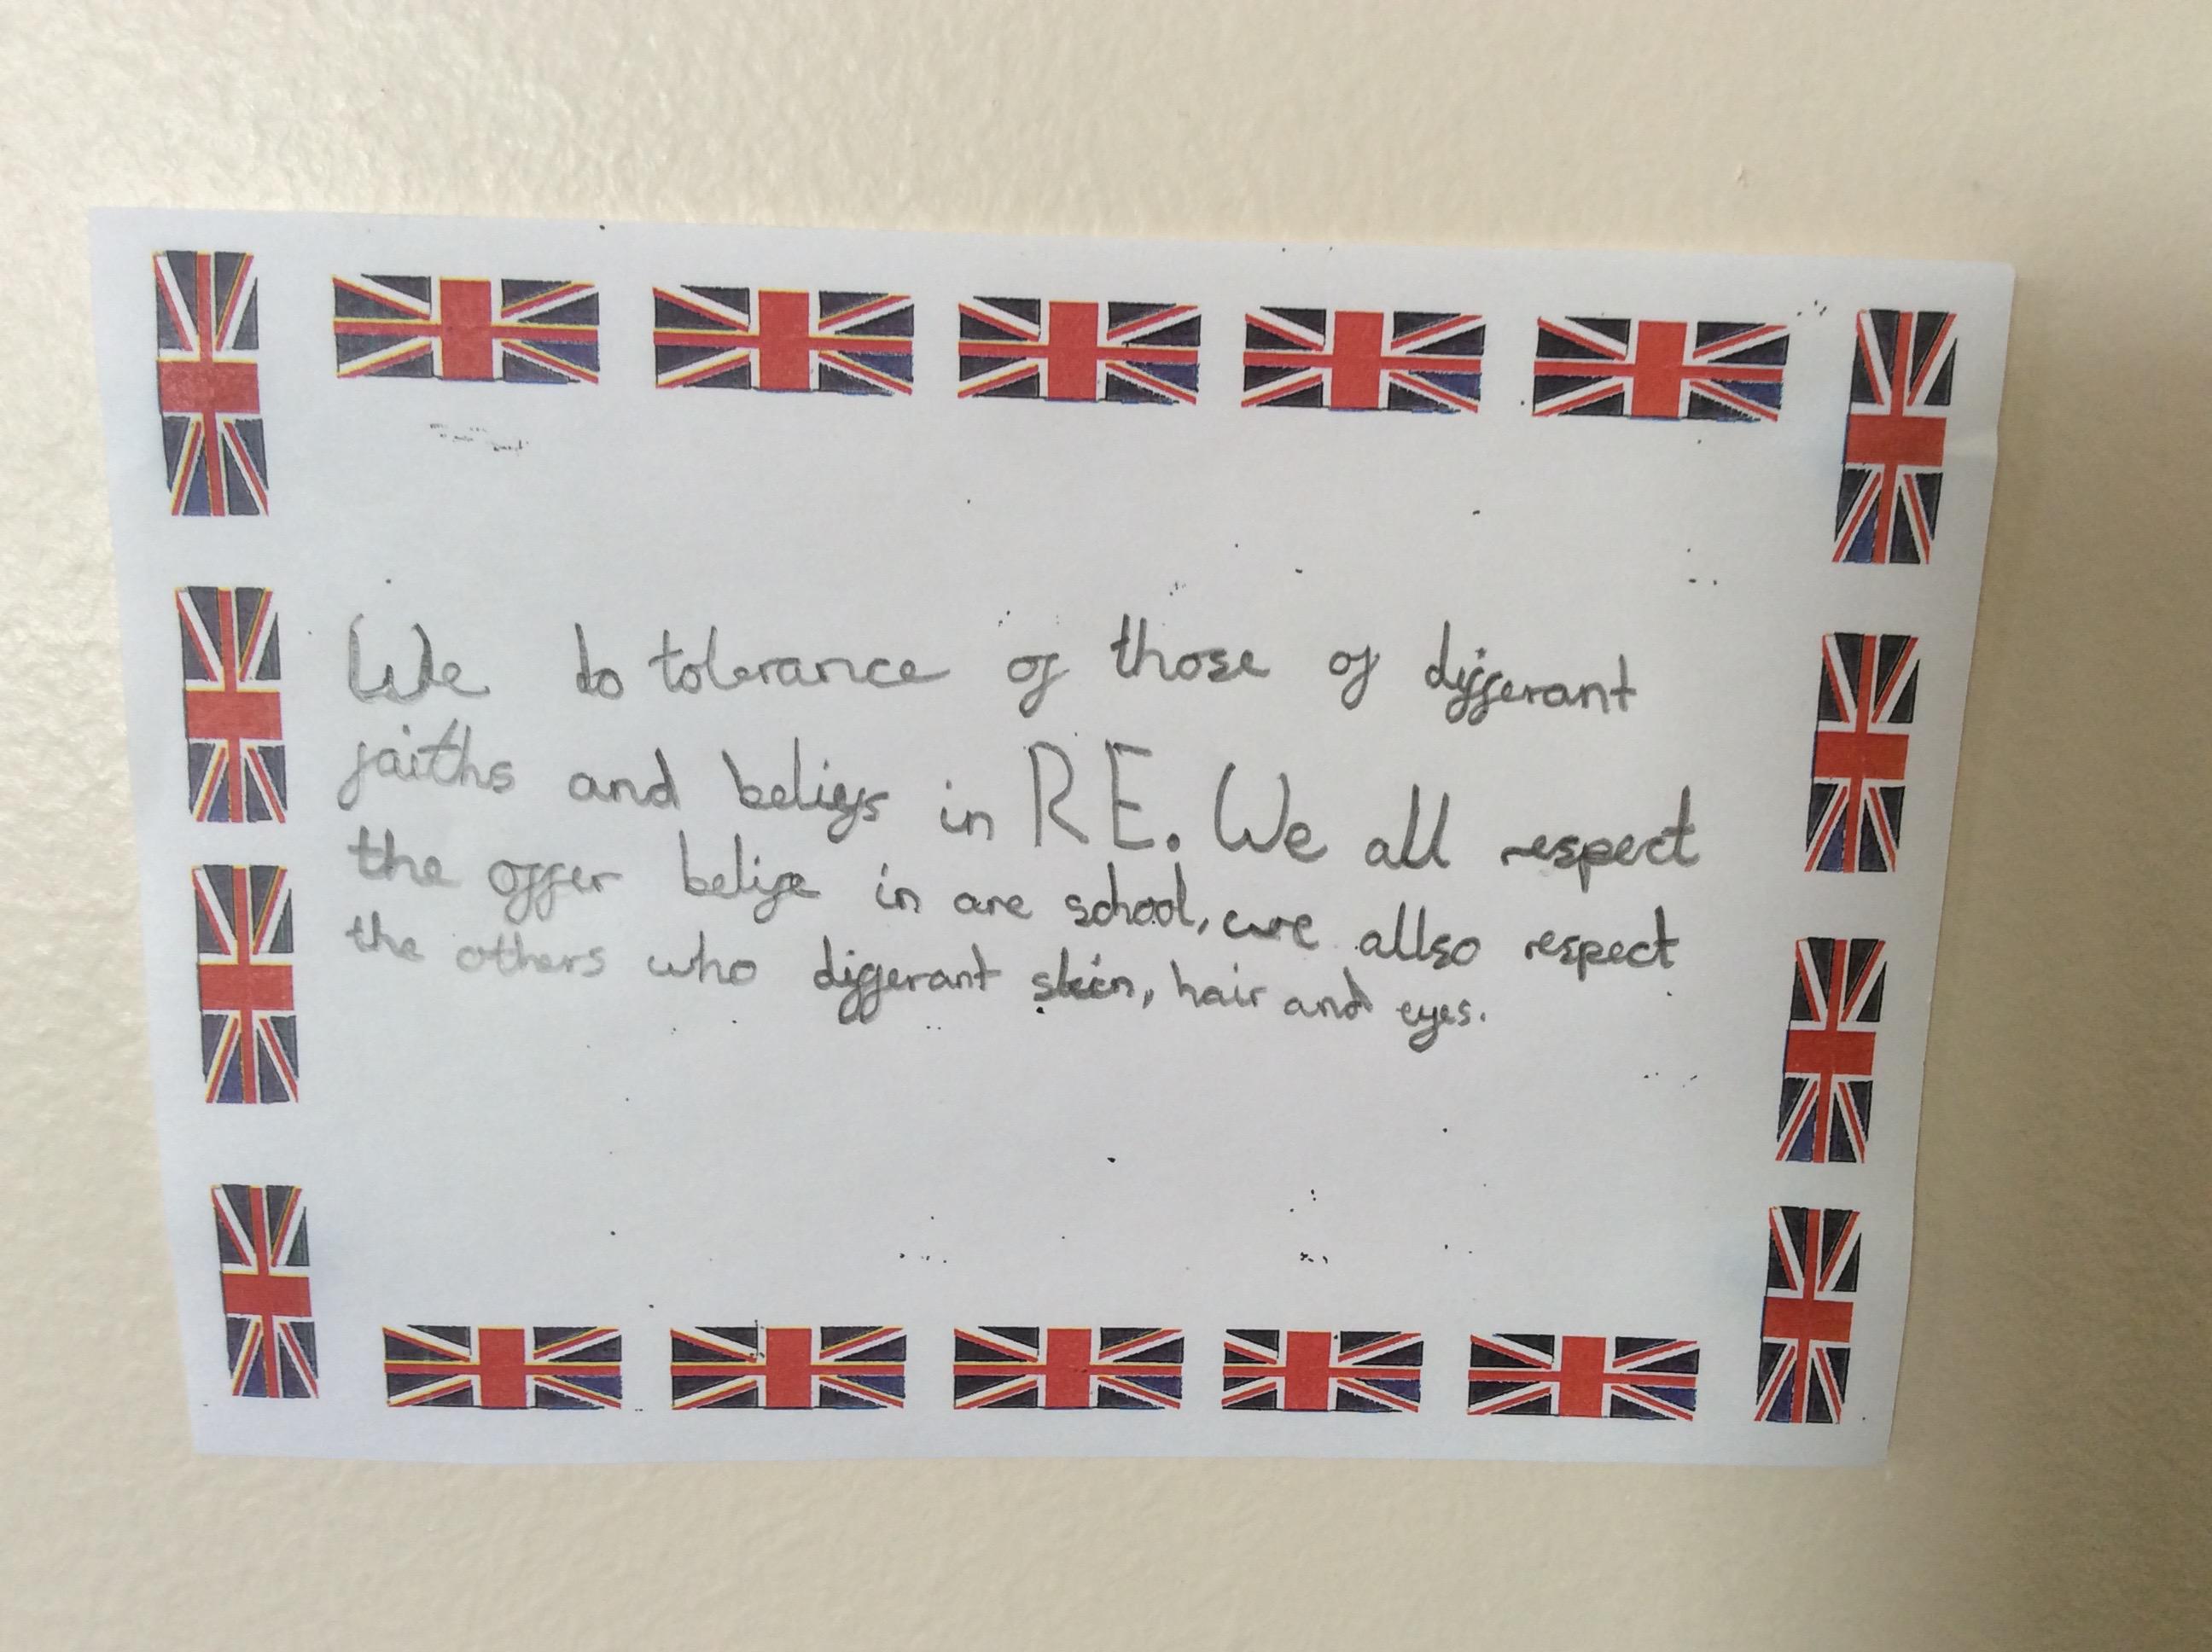 We do tolerance of those of differant
faiths and beliefs in RE. We all respect
the offer belife in are school, we allso respect
the others who differant skin, hair and eyes.